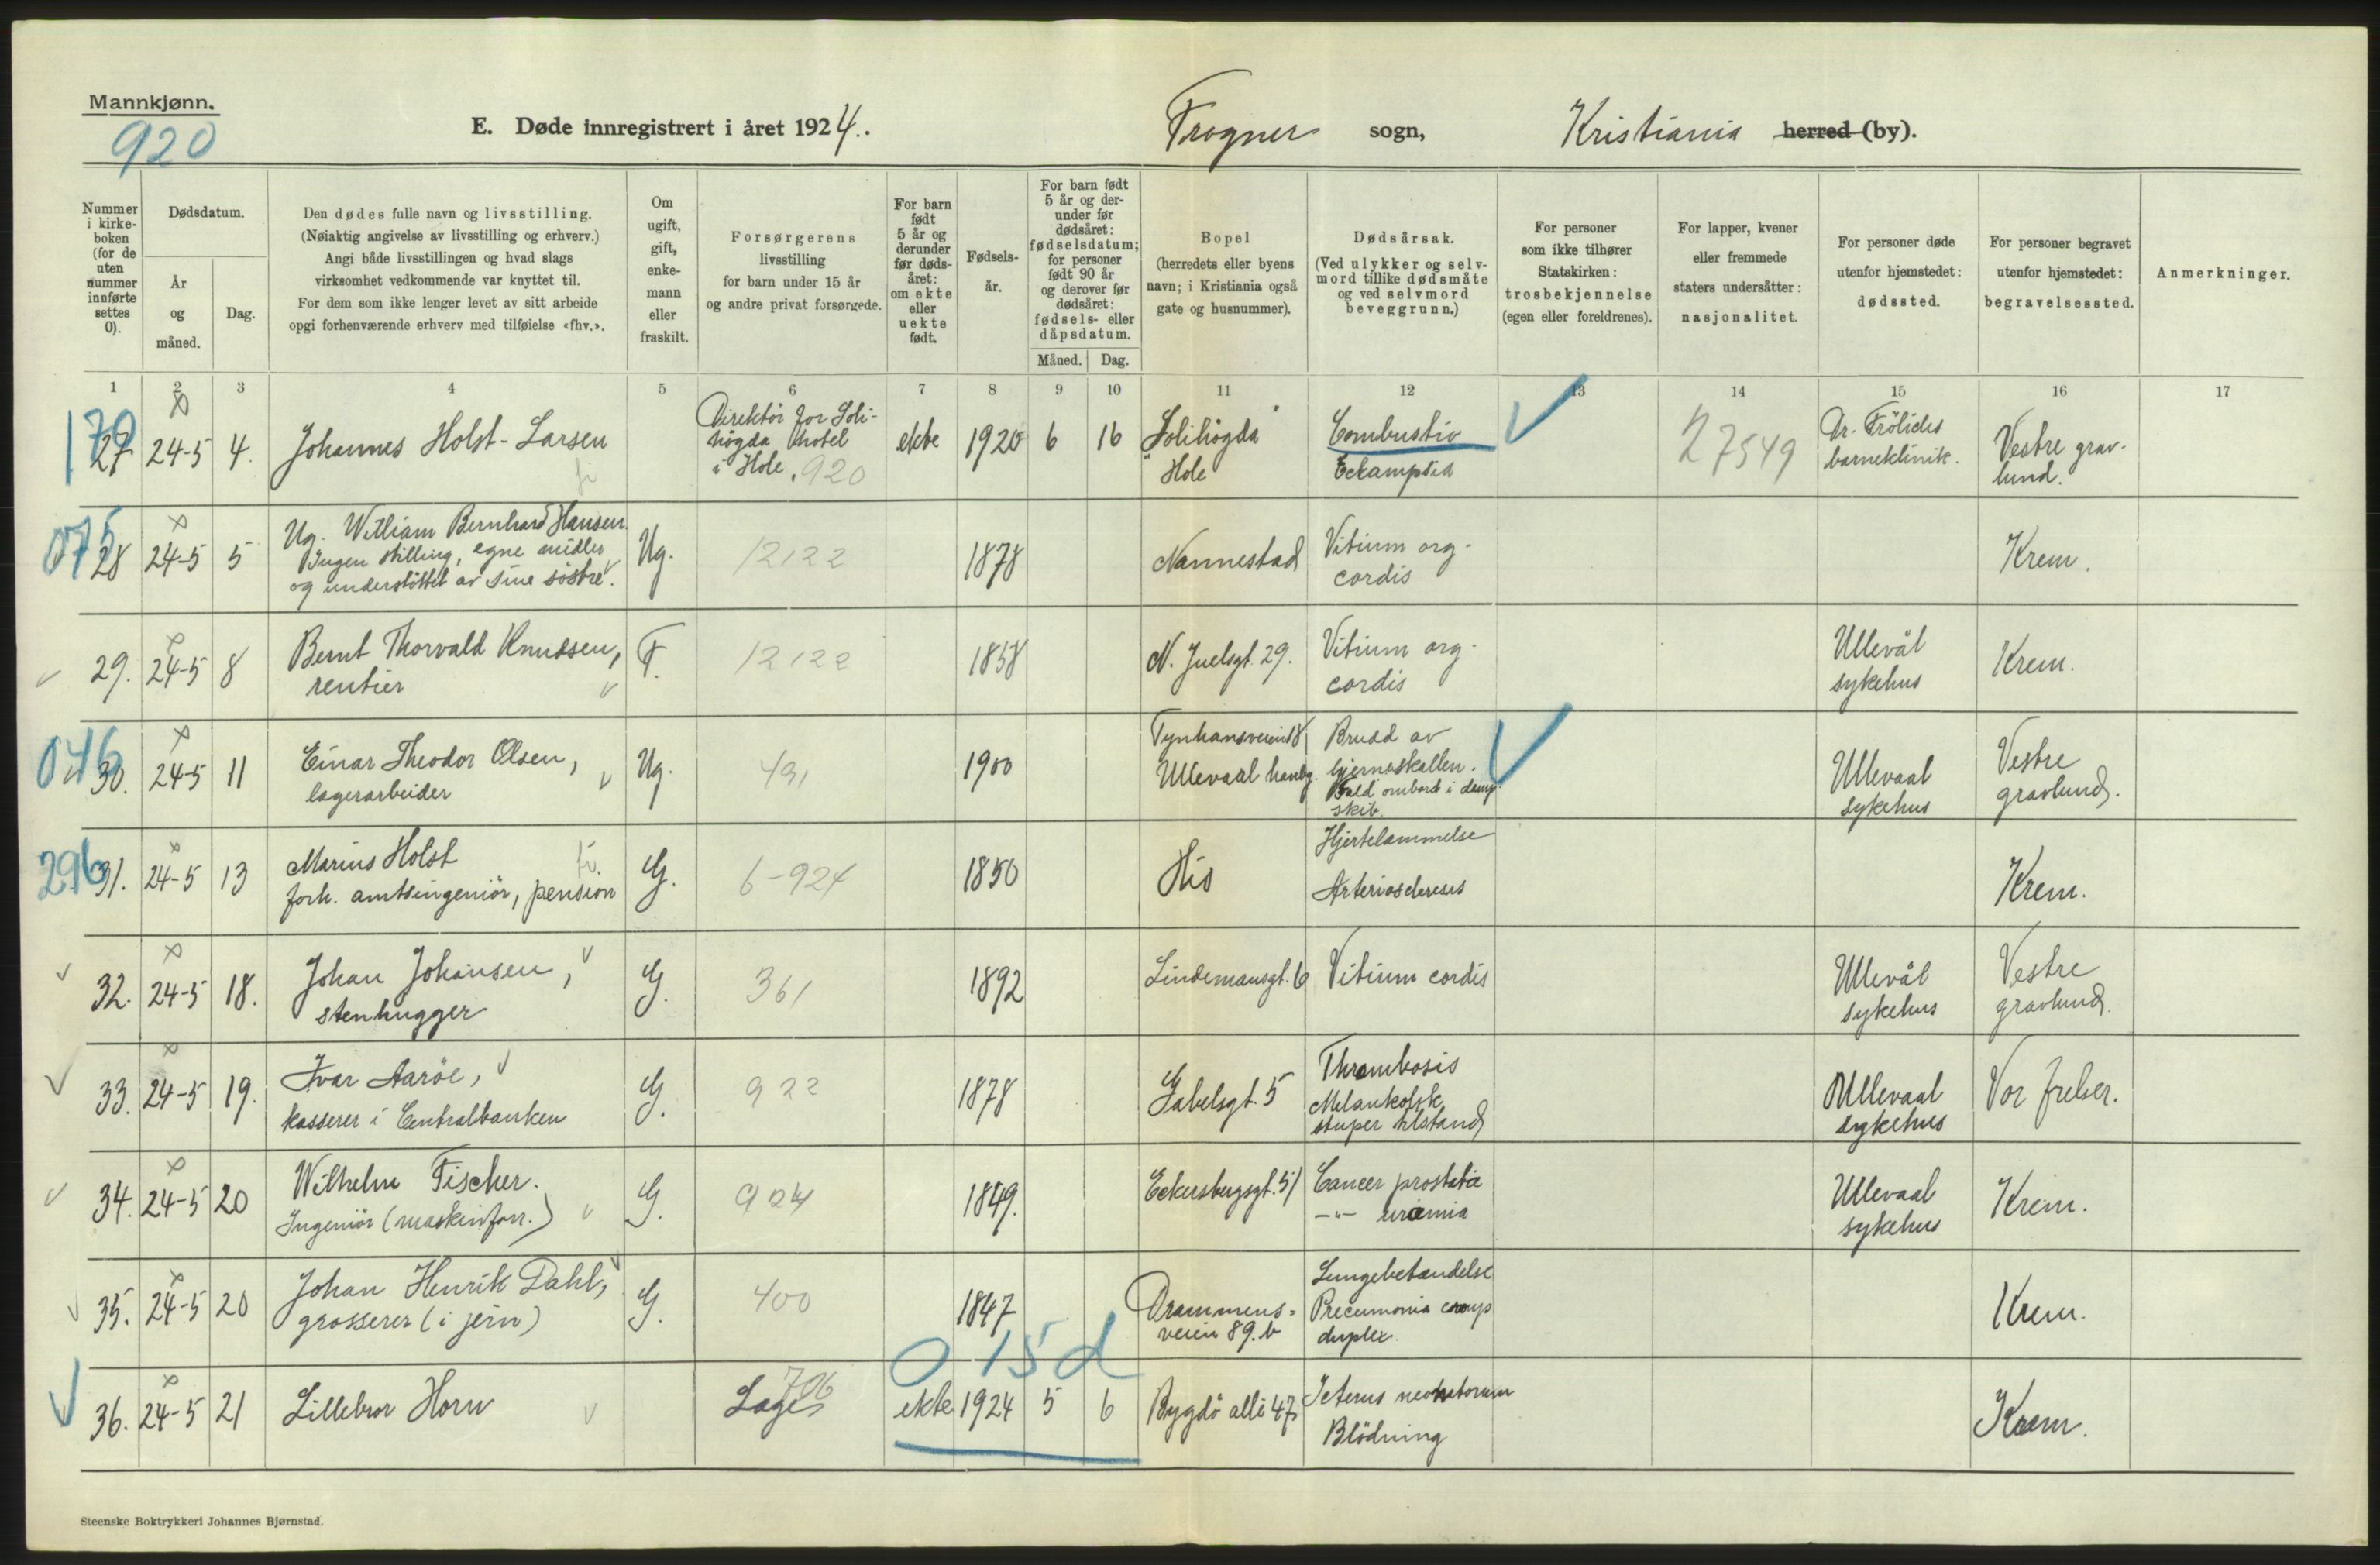 Mannkjønn.
920
E. Døde innregistrert i året 1924.
Frogner sogn, Kristiania herred (by).
Nummer i kirke-boken (for de uten nummer innførte settes 0).
Dødsdatum.
År og måned.
Dag.
Den dødes fulle navn og livsstilling.
(Nøiaktig angivelse av livsstilling og erhverv.)
Angi både livsstillingen og hvad slags
virksomhet vedkommende var knyttet til.
For dem som ikke lenger levet av sitt arbeide
opgi forhenværende erhverv med tilføielse «fhv.».
Om ugift, gift, enke-mann eller fraskilt.
Forsørgerens
livsstilling
for barn under 15 år
og andre privat forsørgede.
For barn født 5 år og derunder før døds-året: om ekte eller uekte født.
Fødsels-år.
For barn født 5 år og der-under før dødsåret: fødselsdatum; for personer født 90 år og derover før dødsåret: fødsels- eller dåpsdatum.
Måned. Dag.
Bopel
(herredets eller byens
navn; i Kristiania også
gate og husnummer).
Dødsårsak.
(Ved ulykker og selv-
mord tillike dødsmåte
og ved selvmord
beveggrunn.)
For personer
som ikke tilhører
Statskirken:
trosbekjennelse
(egen eller foreldrenes).
For lapper, kvener
eller fremmede
staters undersåtter:
nasjonalitet.
For personer døde
utenfor hjemstedet:
dødssted.
For personer begravet
utenfor hjemstedet:
begravelsessted.
Anmerkninger.
1 2 3 4 5 6 7 8 9 10 11 12 13 14 15 16 17
170
27 24-5 4. Johannes Holst-Larsen
Direktör for Soli-
högda hotel
i Hole. 920
ekte 1920 6 16
Solihögda
Hole
Combustio
Eclampsia
27549
Dr. Frölichs
barneklinik.
Vestre grav-
lund.
075
28 24-5 5
Ug. William Bernhard Hansen
Ingen stilling, egne midler
og understöttet av sine söstre.
Ug. 12122 1878 Nannestad
Vitium org.
cordis
Krem.
29. 24-5 8
Bernt Thorvald Knudsen,
rentier
F. 12122 1858 N. Juelsgt. 29.
Vitium org.
cordis
Ullevål
sykehus
Krem.
046
30. 24-5 11
Einar Theodor Olsen,
lagerarbeider
Ug. 491 1900
Ullevaal haveby.
Brudd av
hjerneskallen.
Fald ombord i damp-
skib.
Ullevaal
sykehus
Vestre
gravlund.
296
31. 24-5 13
Marius Holst
forh. amtsingeniör, pension
G. 6-924 1850 His
Hjertelammelse
Arteriosclerosis
Krem.
32. 24-5 18.
Johan Johansen,
stenhugger
G. 361 1892 Lindemansgt. 6 Vitium cordis
Ullevål
sykehus
Vestre
gravlund.
33. 24-5 19.
Ivar Aaröe,
kasserer i Centralbanken
G. 922 1878 Gabelsgt. 5
Thrombosis
Melankolsk
stuper tilstand
Ullevaal
sykehus
Vor frelser.
34. 24-5 20
Wilhelm Fischer.
Ingeniör (maskinforr.)
G. 924 1849. Eckersbergsgt. 51
Cancer prostata
—"— uræmia
Ullevaal
sykehus
Krem.
35. 24-5 20
Johan Henrik Dahl,
grosserer (i jern)
G. 400 1847
Drammens-
veien 89.b
Lungebetændelse
Pneumonia croup
duplex.
Krem.
0 15 d
36. 24-5 21 Lillebror Horn
706
Læge
ekte 1924 5 6 Bygdö allé 47
Icterus neonatorum
Blödning
Krem.
Steenske Boktrykkeri Johannes Bjørnstad.